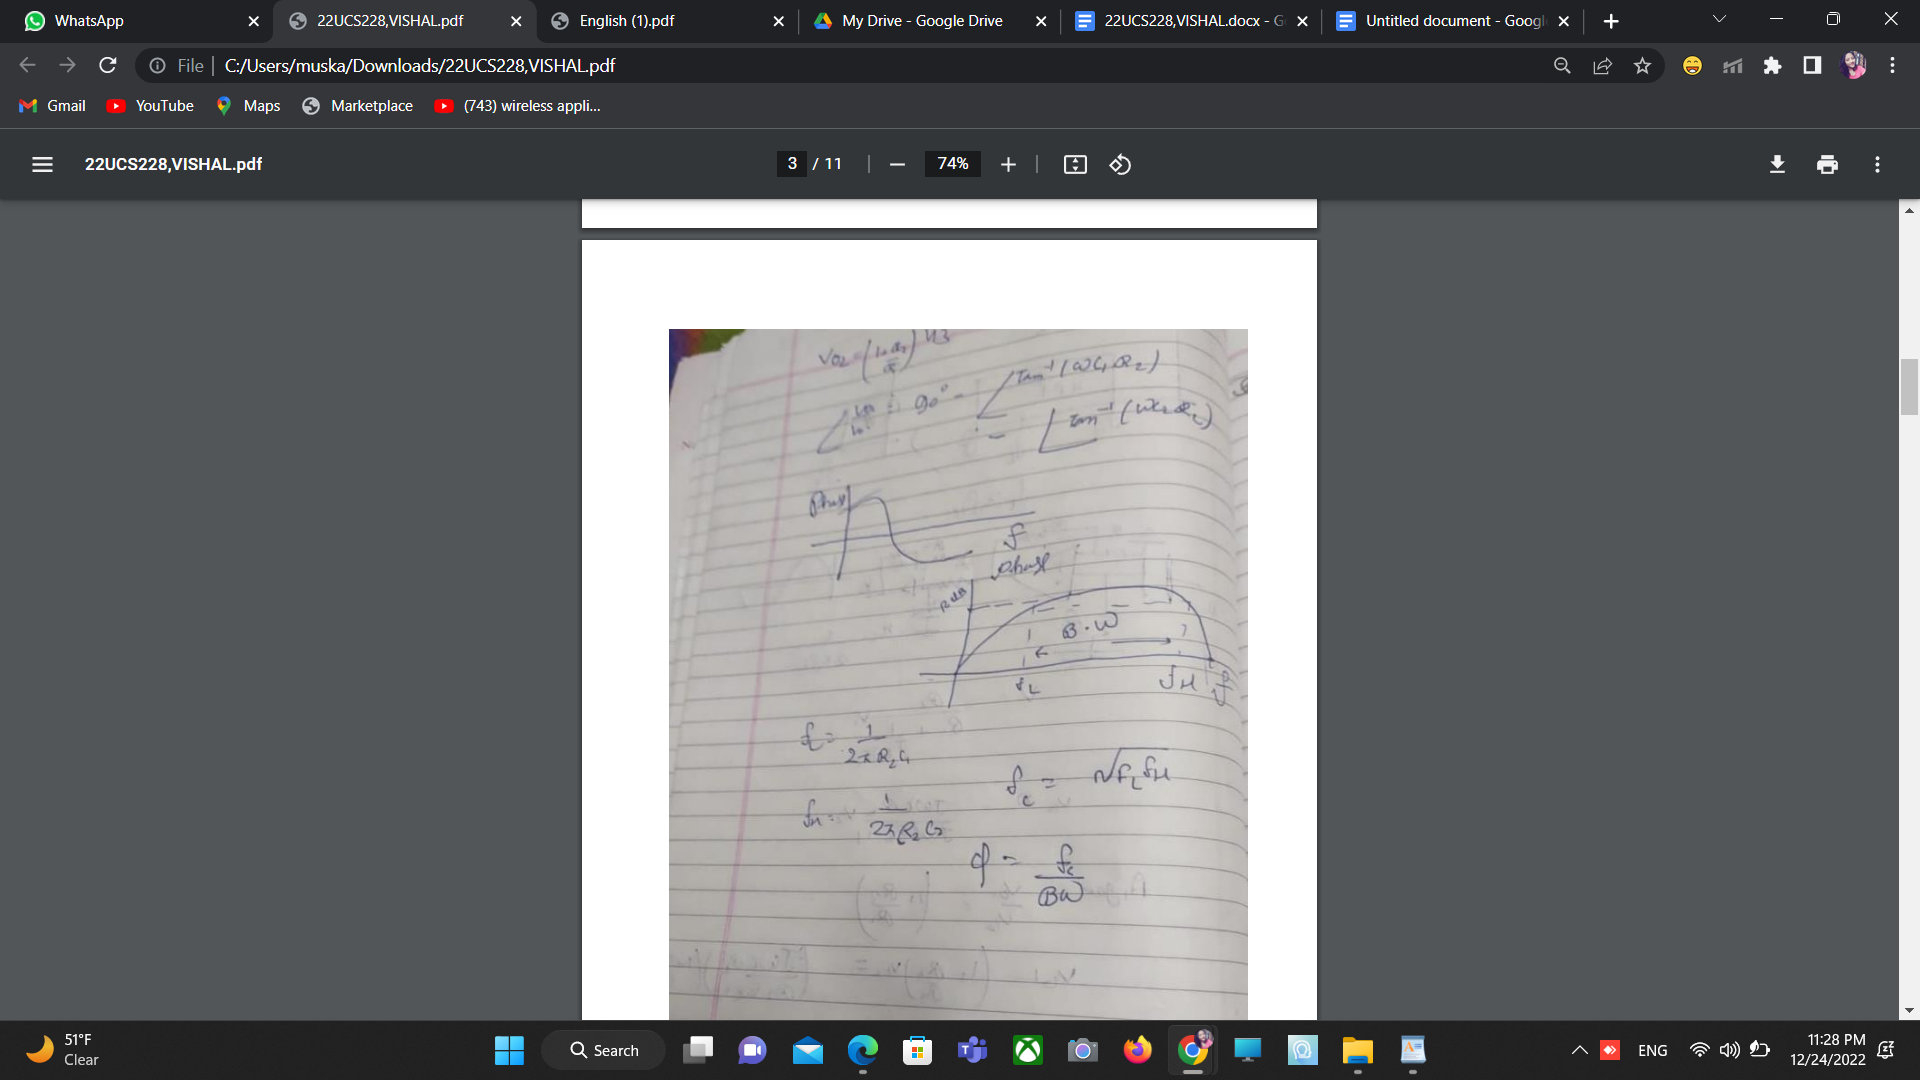 WhatsApp
22UCS228,VISHAL.pdf
English (1).pdf
My Drive - Google Drive
22UCS228,VISHAL.docx - G
Untitled document - Googl
File
C:/Users/muska/Downloads/22UCS228,VISHAL.pdf
Gmail
YouTube
Maps
Marketplace
(743) wireless appli...
22UCS228,VISHAL.pdf
3 / 11
74%
90° - Tan⁻¹(ωC₁R₂)
- Tan⁻¹(ωC₂R₂)
f
B.W
fL
fH
f
fL = 1/2πR₂C₁
fc = √fL fH
fH = 1/2πR₂C₂
= fc/BW
51°F
Clear
Search
ENG
11:28 PM
12/24/2022